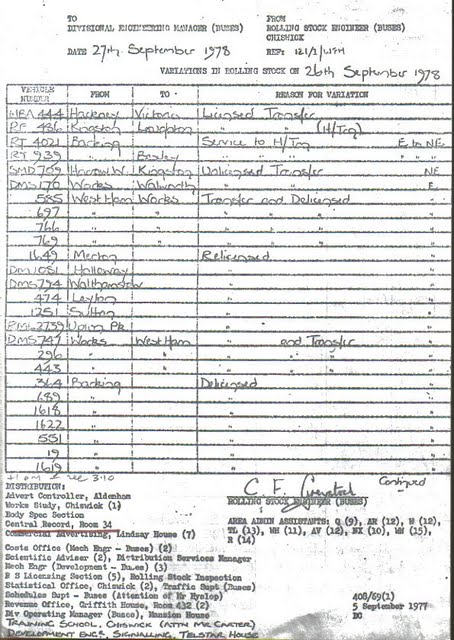 TO FROM
DIVISIONAL ENGINEERING MANAGER (BUSES) ROLLING STOCK ENGINEER (BUSES)
CHISWICK
DATE 27th September 1978 REF: 121/1/WFH
VARIATIONS IN ROLLING STOCK ON 26th September 1978
VEHICLE NUMBER FROM TO REASON FOR VARIATION
MBA 444 Hackney Victoria Licensed Transfer
RF 436 Kingston Loughton " " (H/Trg)
RT 4021 Barking Service to H/Trg E to NE
RT 939 " Bexley " " " " "
SMD 709 Harrow W. Kingston Unlicensed Transfer NE
DMS 170 Works Walworth " " E
585 West Ham Works Transfer and Delicensed "
697 " " " " " "
766 " " " " " "
769 " " " " " "
1649 Merton Relicensed "
DM 1051 Holloway " "
DMS 794 Walthamstow " "
474 Leyton " "
1251 Sutton " "
RML 2739 Upton Pk " "
DMS 747 Works West Ham " and Transfer "
296 " " " " " "
443 " " " " " "
364 Barking Delicensed "
689 " " "
1618 " " "
1622 " " "
551 " " "
19 " " "
1619 " " "
Continued
DISTRIBUTION:
Advert Controller, Aldenham
Works Study, Chiswick (1)
Body Spec Section
Central Record, Room 34
Commercial Advertising, Lindsay House (7)
Costs Office (Mech Engr - Buses) (2)
Scientific Adviser (2), Distribution Services Manager
Mech Engr (Development - Buses) (3)
R S Licensing Section (5), Rolling Stock Inspection
Statistical Office, Chiswick (2), Traffic Supt (Buses)
Schedules Supt - Buses (Attention of Mr Hyslop)
Revenue Office, Griffith House, Room 432 (2)
Div Operating Manager (Buses), Mansion House
TRAINING SCHOOL, CHISWICK (ATTN MR CARTER)
DEVELOPMENT ENGR. SIGNALLING, TELSTAR HOUSE
ROLLING STOCK ENGINEER (BUSES)
AREA ADMIN ASSISTANTS: Q (9), AR (12), W (12),
TL (13), WH (11), AV (12), NX (10), WM (15),
R (14)
408/69(1)
5 September 1977
DC